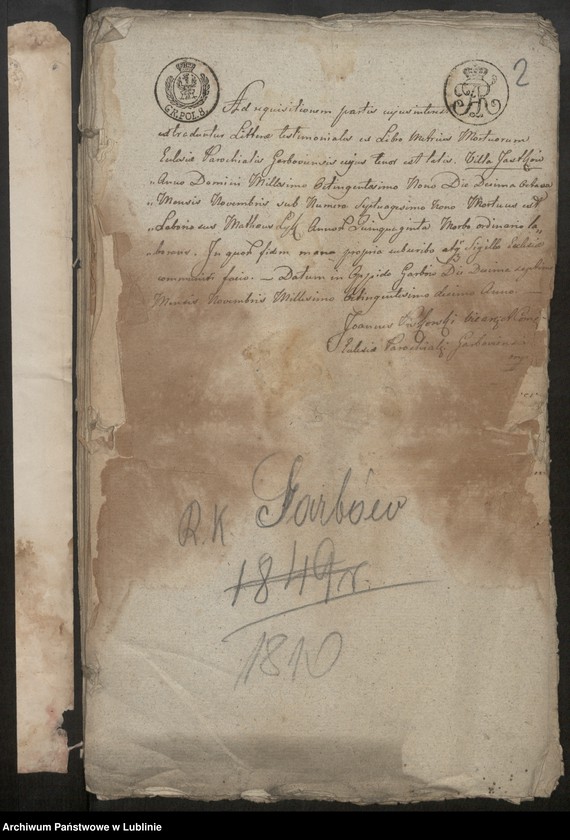 2
GR. POL. 8.
Ad requisitionem partis cujus interest
extraductus Littras testimoniales ex Libro Metrices Mortuorum
Eclesie Parochialis Garboviensis cujus tenor est talis. Villa Jastkow
"Anno Domini Millesimo Octingentesimo Nono Die Decima Octava
"Mensis Novembris sub Numero Septuagesimo nono Mortuus est
"Laboriosus Matheus Annor Quinquaginta Morbo ordinario la
"borans. In quor fidem manu propria subscribo atq Sigillo Eclesie
communiri facio. — Datum in Oppido Garbow Die Decima septima
Mensis Novembris Millesimo Octingentesimo decimo Anno. —
Joannes
Eclesie Parochialis Garboviensis
mp
R. K. Garbów
1849 r.
1810
Archiwum Państwowe w Lublinie